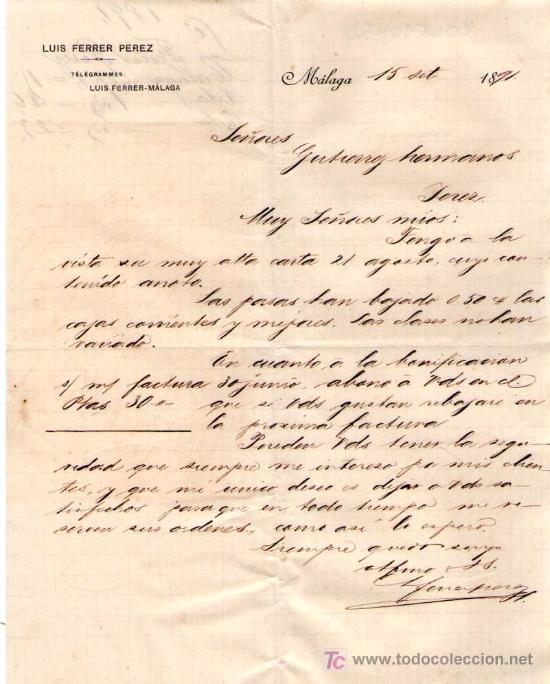 LUIS FERRER PEREZ
TELÉGRAMMES:
LUIS FERRER-MÁLAGA
Málaga 15 set 1891
Señores
Gutierrez hermanos
Jerez
Muy Señores mios:
Tengo a la
vista su muy atta carta 21 agosto, cuyo con-
tenido anoto.
Las pasas han bajado 0.50 las
cajas corrientes y mejores. Las clases no han
variado.
En cuanto a la bonificacion
s/ m/ factura 30 junio, abono a Vds en c/
Ptas 30 " que si Vds gustan rebajaré en
la proxima factura
Pueden Vds tener la segu-
ridad que siempre me intereso por mis clien-
tes, y que mi unico deseo es dejar a Vds sa-
tisfechos para que en todo tiempo me re-
serven sus ordenes, como asi lo espero
Siempre quedo suyo
Affmo S.S.
TC www.todocoleccion.net